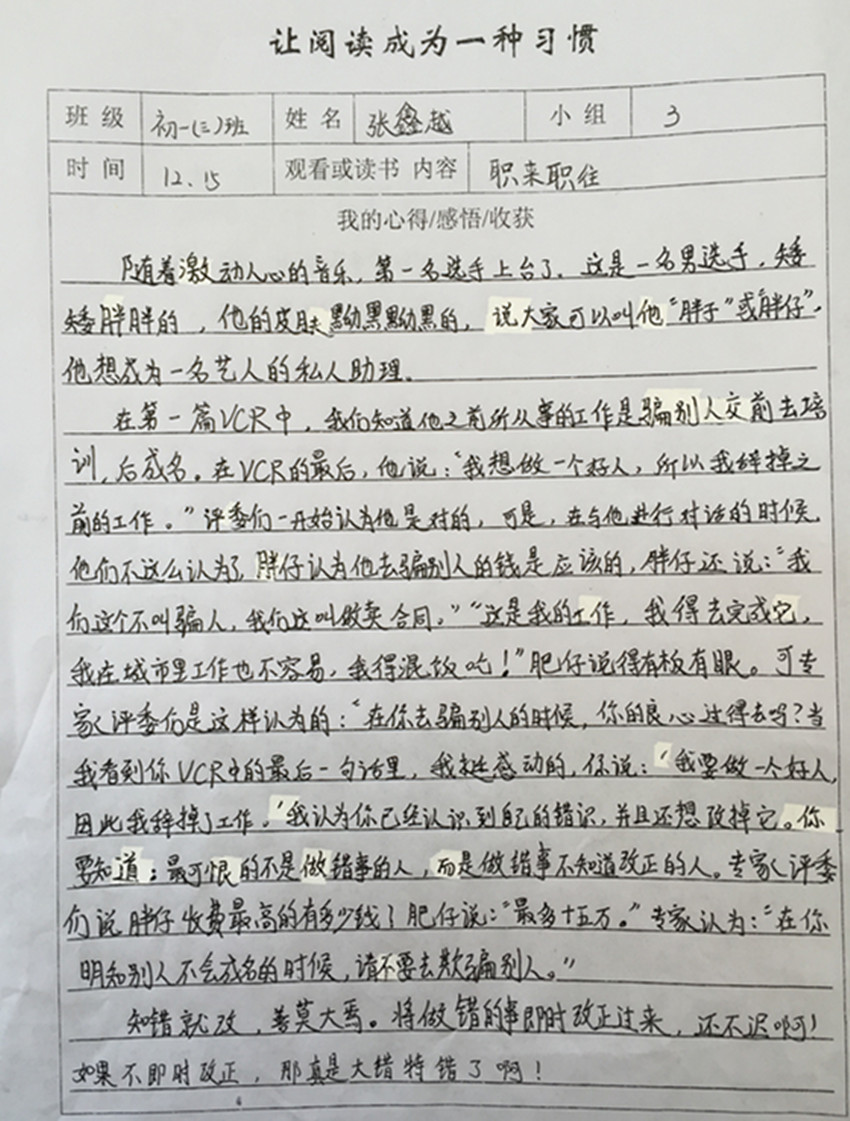 让阅读成为一种习惯
班级 初一(三)班 姓名 张鑫越 小组 3
时间 12.15 观看或读书 内容 职来职住
我的心得/感悟/收获
随着激动人心的音乐，第一名选手上台了．这是一名男选手，矮
矮胖胖的，他的皮肤黝黑黝黑的，说大家可以叫他“胖子”或“胖仔”．
他想成为一名艺人的私人助理。
在第一篇VCR中，我们知道他之前所从事的工作是骗别人交前去培
训，后成名。在VCR的最后，他说：“我想做一个好人，所以我辞掉之
前的工作。”评委们一开始认为他是对的，可是，在与他进行对话的时候，
他们不这么认为了，胖仔认为他去骗别人的钱是应该的，胖仔还说：“我
们这个不叫骗人，我们这叫做卖合同。”“这是我的工作，我得去完成它，
我在城市里工作也不容易，我得混饭吃！”肥仔说得有板有眼。可专
家评委们是这样认为的：“在你去骗别人的时候，你的良心过得去吗？当
我看到你VCR中的最后一句话里，我挺感动的，你说：‘我要做一个好人，
因此我辞掉了工作。’我认为你已经认识到自己的错识，并且还想改掉它。你
要知道：最可恨的不是做错事的人，而是做错事不知道改正的人。专家评委
们说胖仔收费最高的有多少钱？肥仔说：“最多十五万。”专家认为：“在你
明知别人不会成名的时候，请不要去欺骗别人。”
知错就改，善莫大焉。将做错的事即时改正过来，还不迟啊！
如果不即时改正，那真是大错特错了啊！